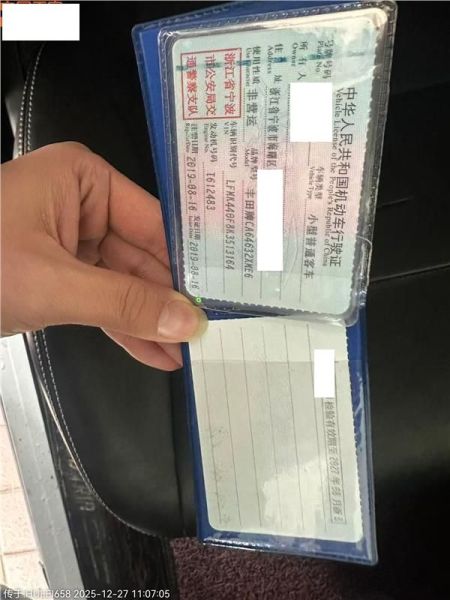 中华人民共和国机动车行驶证
Vehicle License of the People's Republic of China
号牌号码
Plate No.
车辆类型
Vehicle Type
小型普通客车
所有人
Owner
住址
Address
浙江省宁波市海曙区
使用性质
Use Character
非营运
品牌型号
Model
浙江省宁波
市公安局交
通警察支队
车辆识别代号
VIN
发动机号码
Engine No.
T612483
注册日期
Register Date
2019-08-16
发证日期
Issue Date
2019-08-16
检验有效期至 2027 年 08 月
2025-12-27 11:07:05